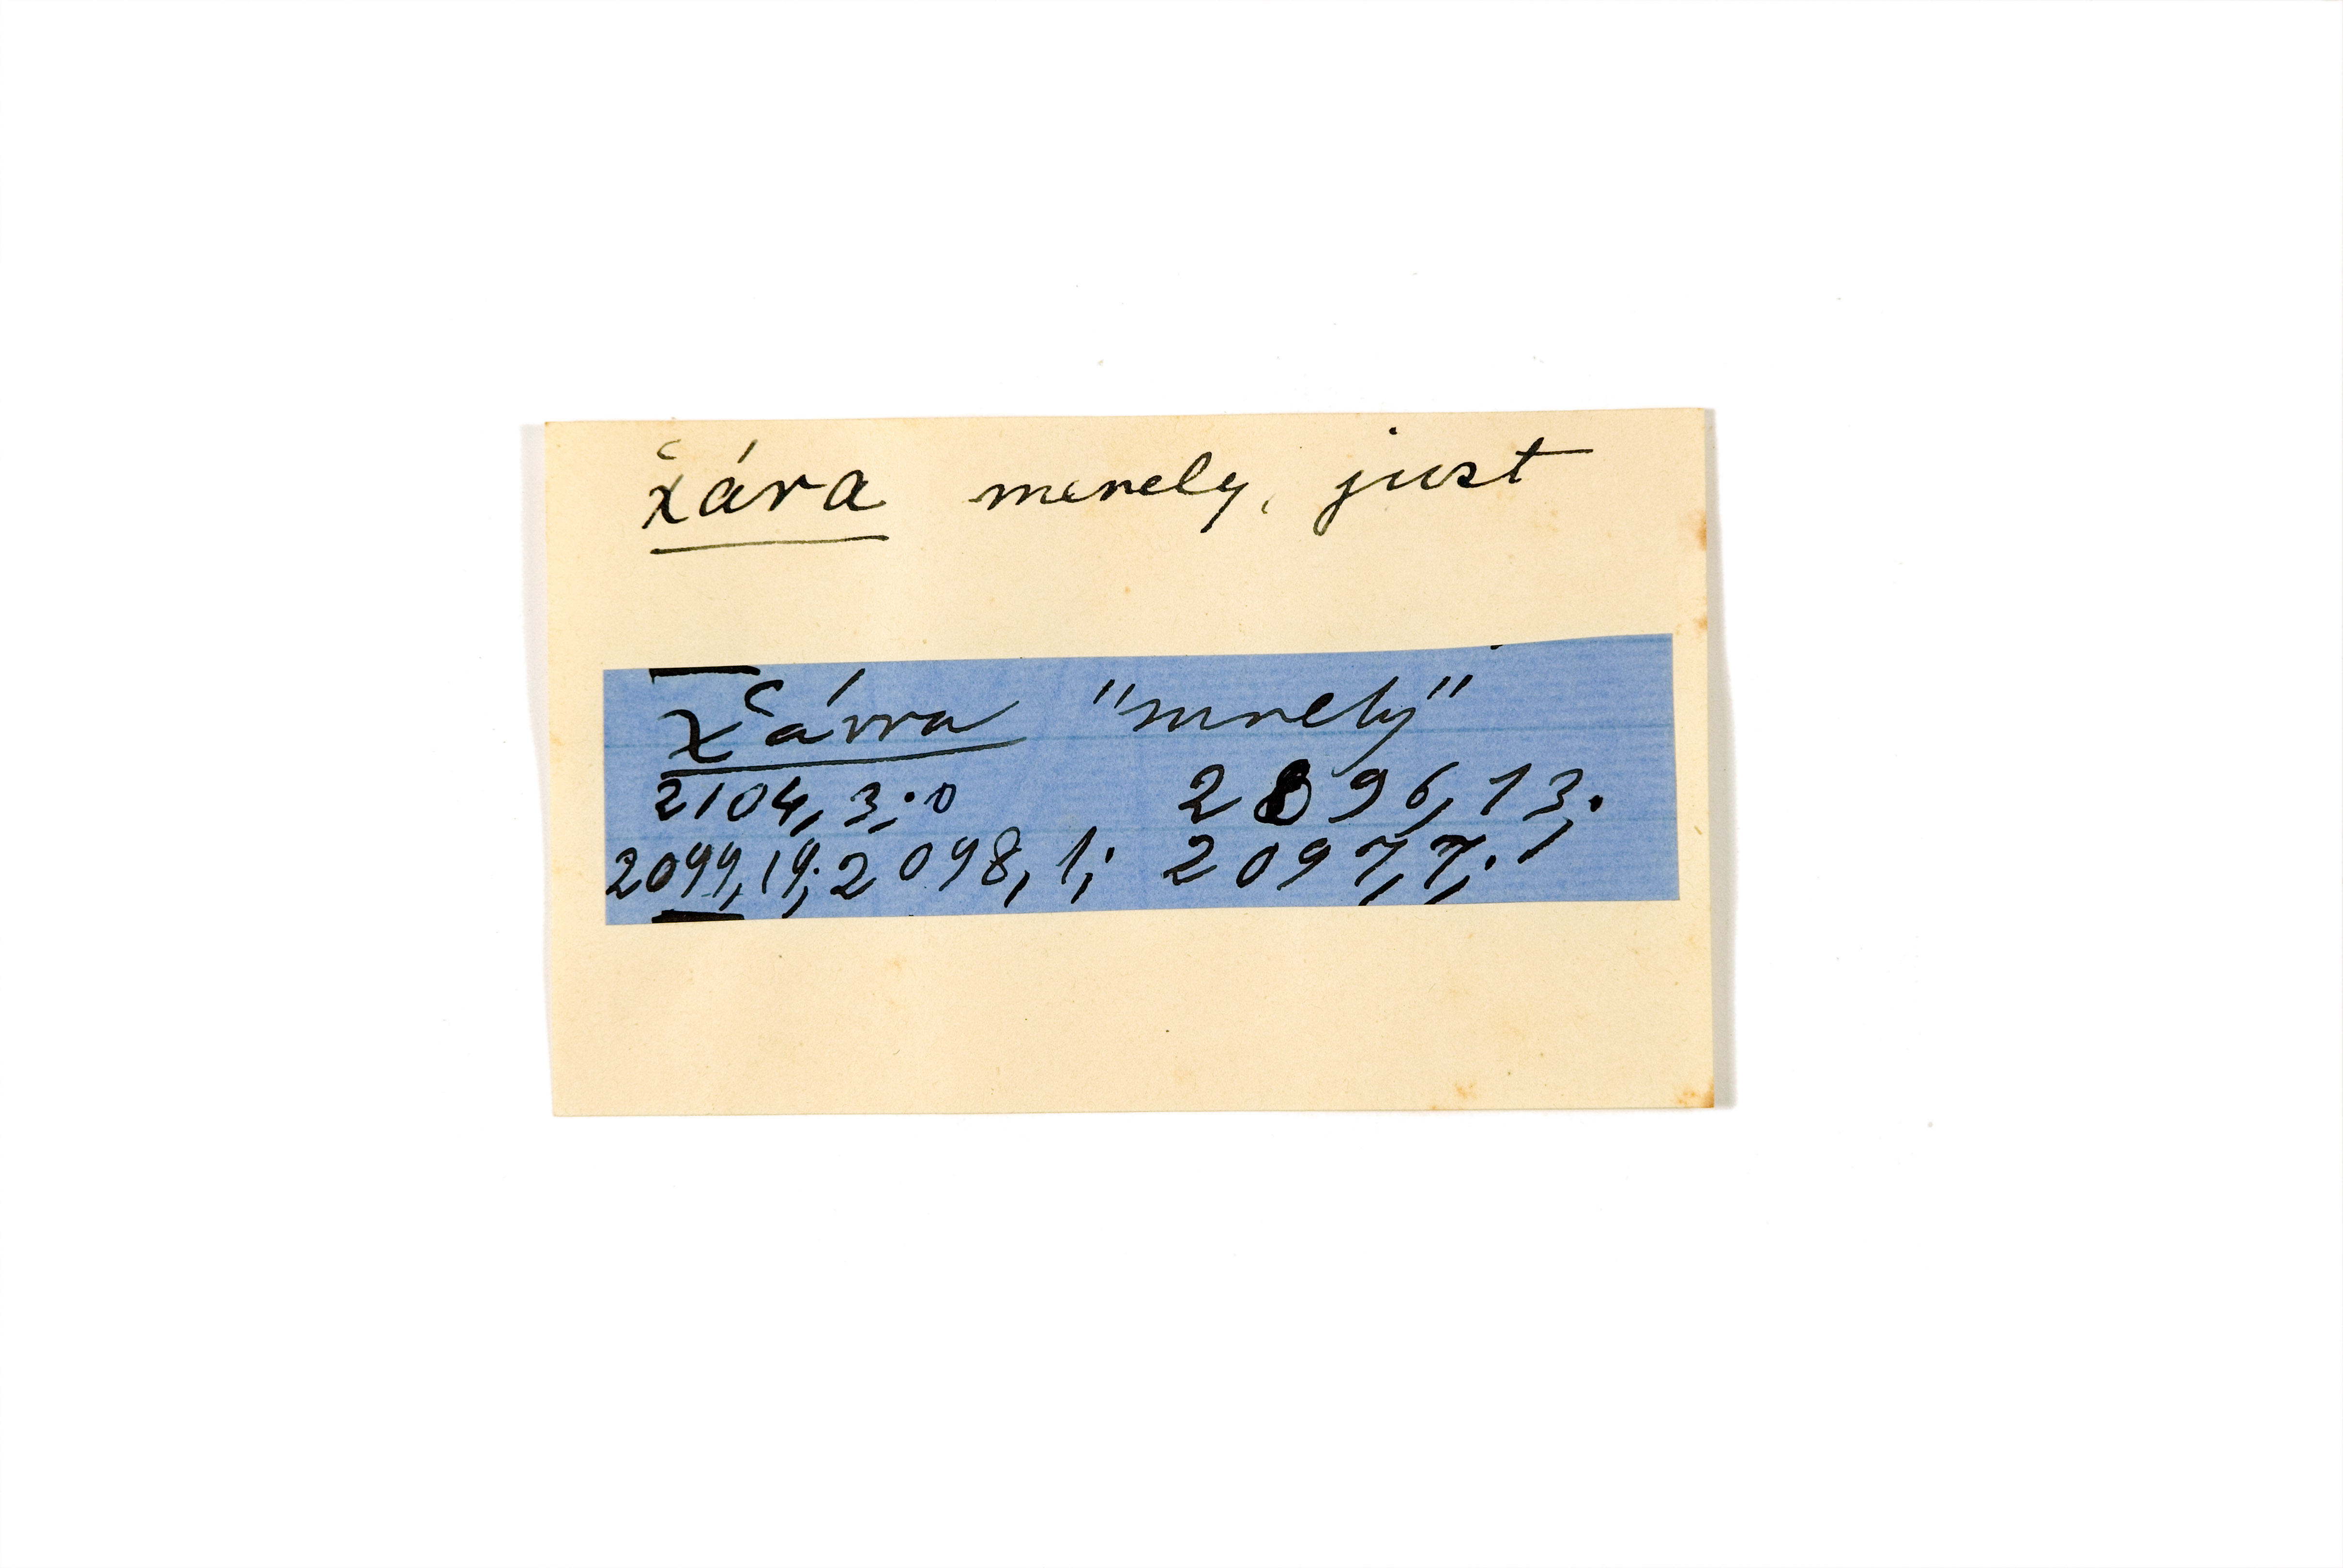 χ̆ára merely, just
χ̆árra "merely"
2104, 3; 2096, 13;
2099, 19; 2098, 1; 2097, 7;